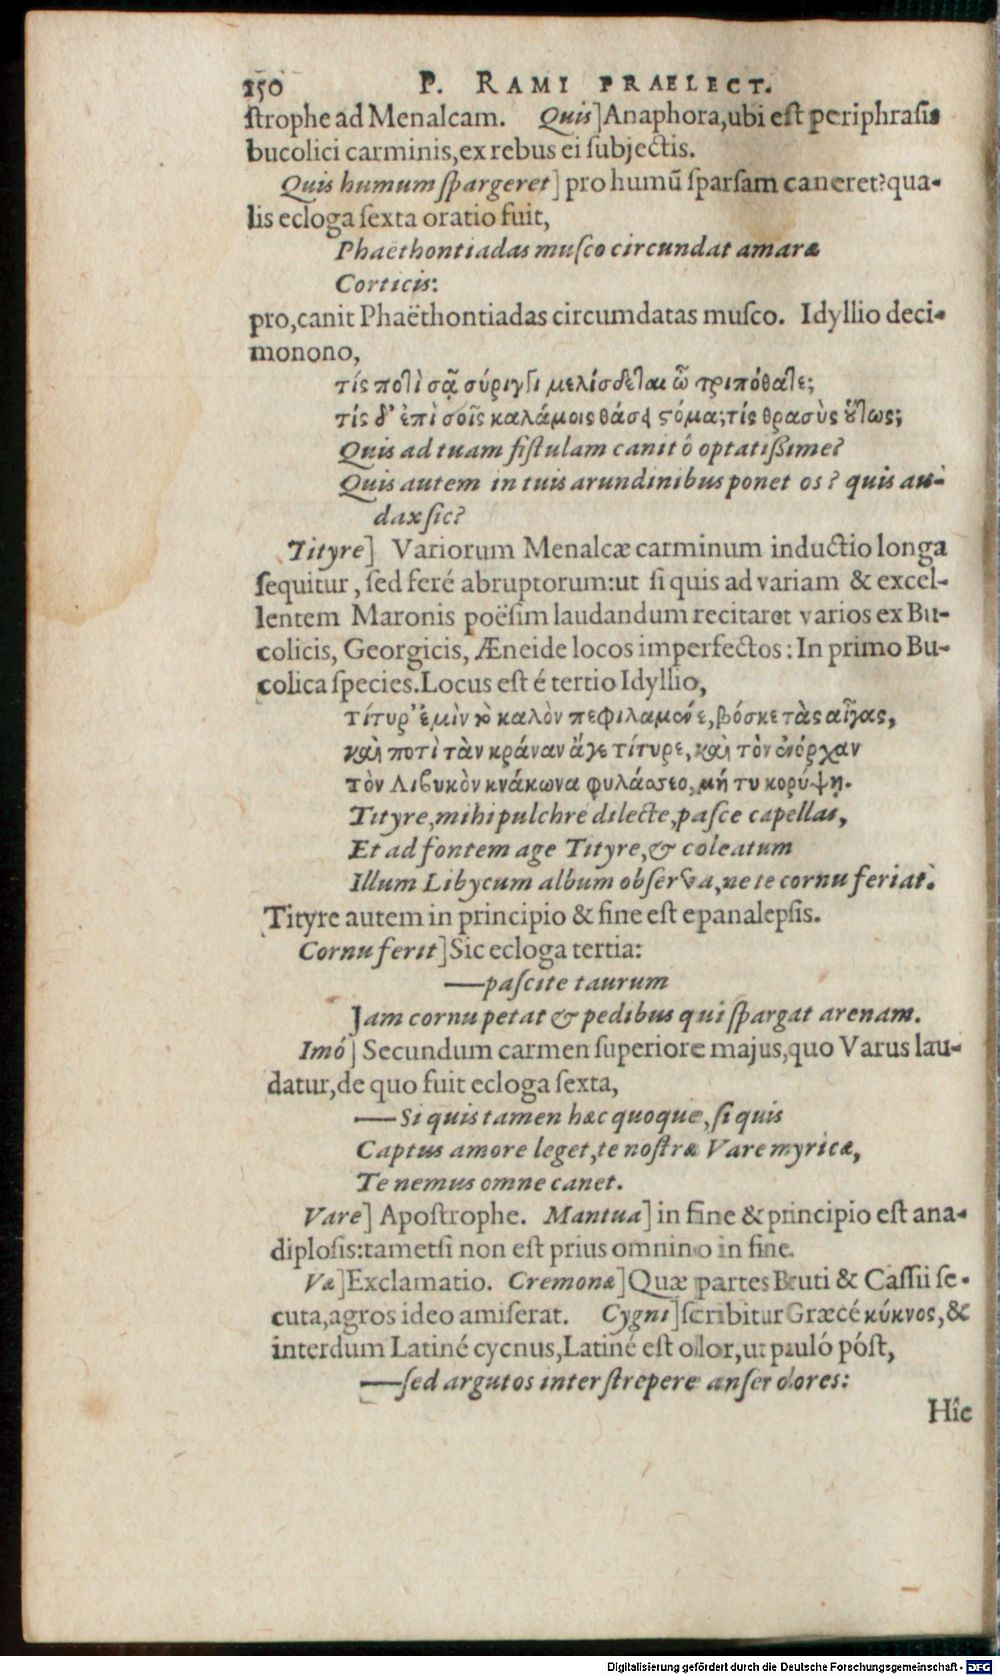 150 P. RAMI PRAELECT.
ſtrophe ad Menalcam. Quis] Anaphora, ubi eſt periphraſis
bucolici carminis, ex rebus ei ſubjectis.
Quis humum ſpargeret] pro humū ſparſam caneret? qua-
lis ecloga ſexta oratio fuit,
Phaëthontiadas muſco circundat amaræ
Corticis:
pro, canit Phaëthontiadas circumdatas muſco. Idyllio deci-
monono,
τίς ποτὶ σᾷ σύριγγι μελίσδεται ὦ τριπόθατε;
τίς δ' ἐπὶ σοῖς καλάμοις θάσει στόμα; τίς θρασὺς οὕτως;
Quis ad tuam fiſtulam canit ô optatißime?
Quis autem in tuis arundinibus ponet os? quis au-
dax ſic?
Tityre] Variorum Menalcæ carminum inductio longa
ſequitur, ſed feré abruptorum: ut ſi quis ad variam & excel-
lentem Maronis poëſim laudandum recitaret varios ex Bu-
colicis, Georgicis, Æneide locos imperfectos: In primo Bu-
colica ſpecies. Locus eſt é tertio Idyllio,
τίτυρ' ἐμὶν τὸ καλὸν πεφιλαμένε, βόσκε τὰς αἶγας,
καὶ ποτὶ τὰν κράναν ἄγε τίτυρε, καὶ τὸν ἐνόρχαν
τὸν Λιβυκὸν κνάκωνα φυλάσσεο, μή τυ κορύψῃ.
Tityre, mihi pulchre dilecte, paſce capellas,
Et ad fontem age Tityre, & coleatum
Illum Libycum album obſerva, ne te cornu feriat.
Tityre autem in principio & fine eſt epanalepſis.
Cornu ferit] Sic ecloga tertia:
—paſcite taurum
Jam cornu petat & pedibus qui ſpargat arenam.
Imó] Secundum carmen ſuperiore majus, quo Varus lau-
datur, de quo fuit ecloga ſexta,
—Si quis tamen hæc quoque, ſi quis
Captus amore leget, te noſtræ Vare myricæ,
Te nemus omne canet.
Vare] Apoſtrophe. Mantua] in fine & principio eſt ana-
diploſis: tametſi non eſt prius omnino in fine.
Væ] Exclamatio. Cremonæ] Quæ partes Bruti & Caſſii ſe-
cuta, agros ideo amiſerat. Cygni] ſcribitur Græcé κύκνος, &
interdum Latiné cycnus, Latiné eſt olor, ut pauló póſt,
—ſed argutos inter ſtrepere anſer olores:
Hîc
Digitalisierung gefördert durch die Deutsche Forschungsgemeinschaft - DFG